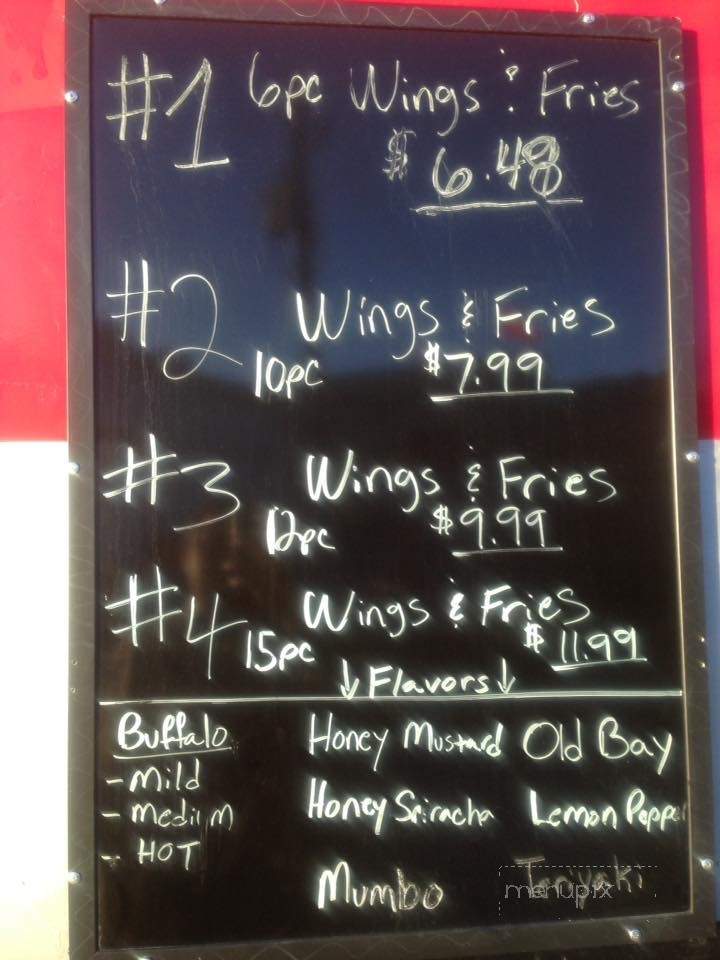 #1 6pc Wings & Fries
$ 6.48
#2 Wings & Fries
10pc $7.99
#3 Wings & Fries
12pc $9.99
#4 Wings & Fries
15pc $ 11.99
↓Flavors↓
Buffalo Honey Mustard Old Bay
- Mild
- Medium Honey Sriracha Lemon Pepper
- HOT
Mumbo Teriyaki
menupix